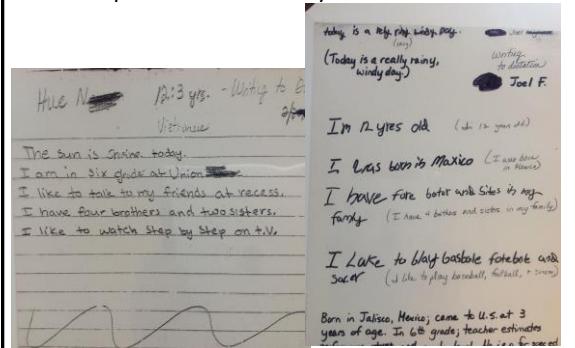 Hue N
12:3 yrs. - Writing to
Vietnamese
The sun is Shine today.
I am in Six grade at Union
I like to talk to my friends at recess.
I have four brothers and two sisters.
I like to watch Step by Step on t.V.
today is a rely riny windy Day.
(rainy)
(Today is a really rainy,
windy day.)
Joel
Writing
to dictation
Joel F.
I'm 12 yres old (I'm 12 years old)
I was born is Maxico (I was born
in Mexico)
I have fore boter and Sites is my
family (I have 4 brothers and sisters in my family)
I Lake to blay basbale fotebote and
socer (I like to play baseball, football, + soccer)
Born in Jalisco, Mexico; came to U.S. at 3
years of age. In 6th grade; teacher estimates